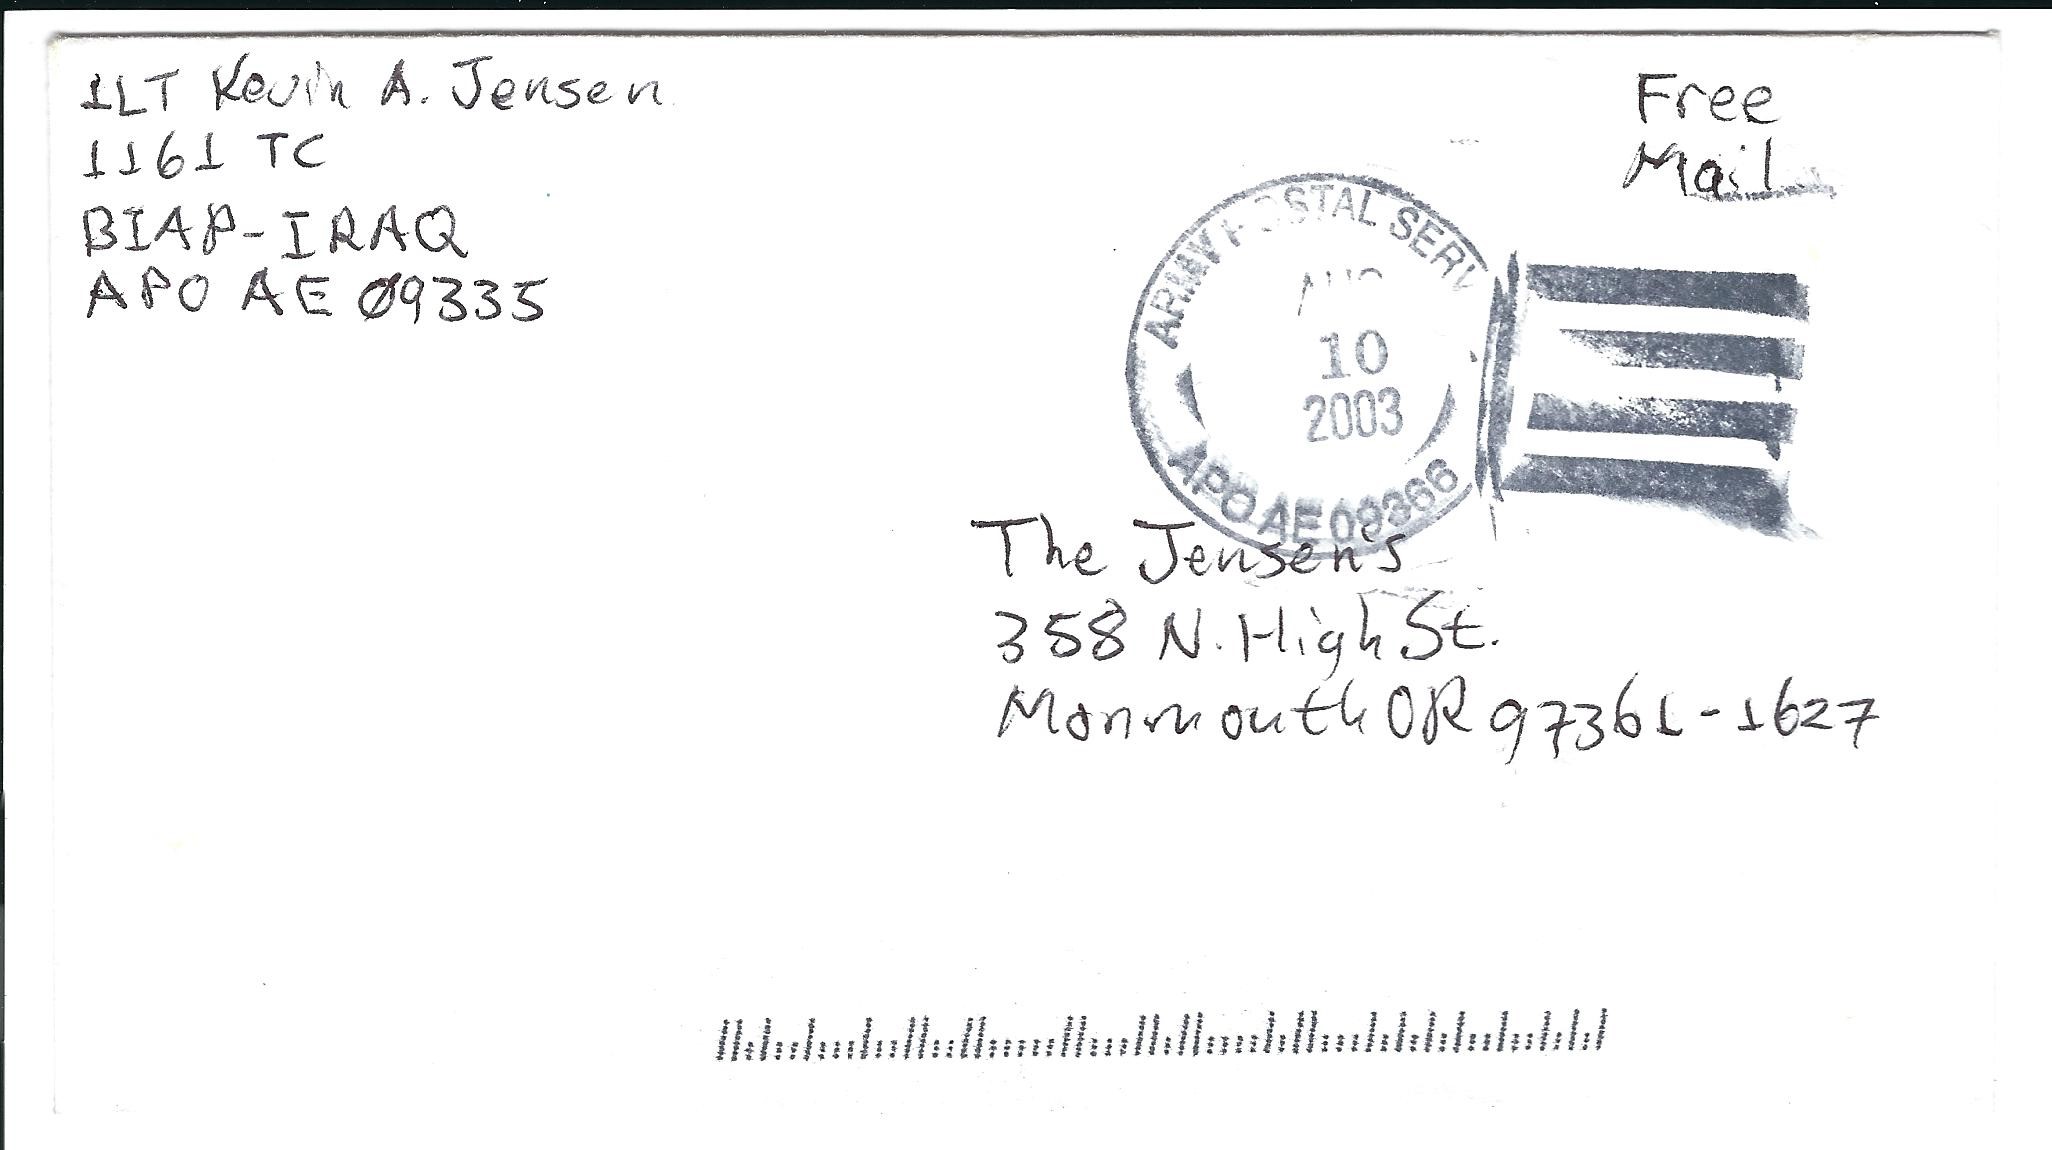 1LT Kevin A. Jensen
1161 TC
BIAP-IRAQ
APO AE 09335
Free
Mail
ARMY POSTAL SERV
AUG
10
2003
APO AE 09366
The Jensen's
358 N. High St.
Monmouth OR 97361-1627